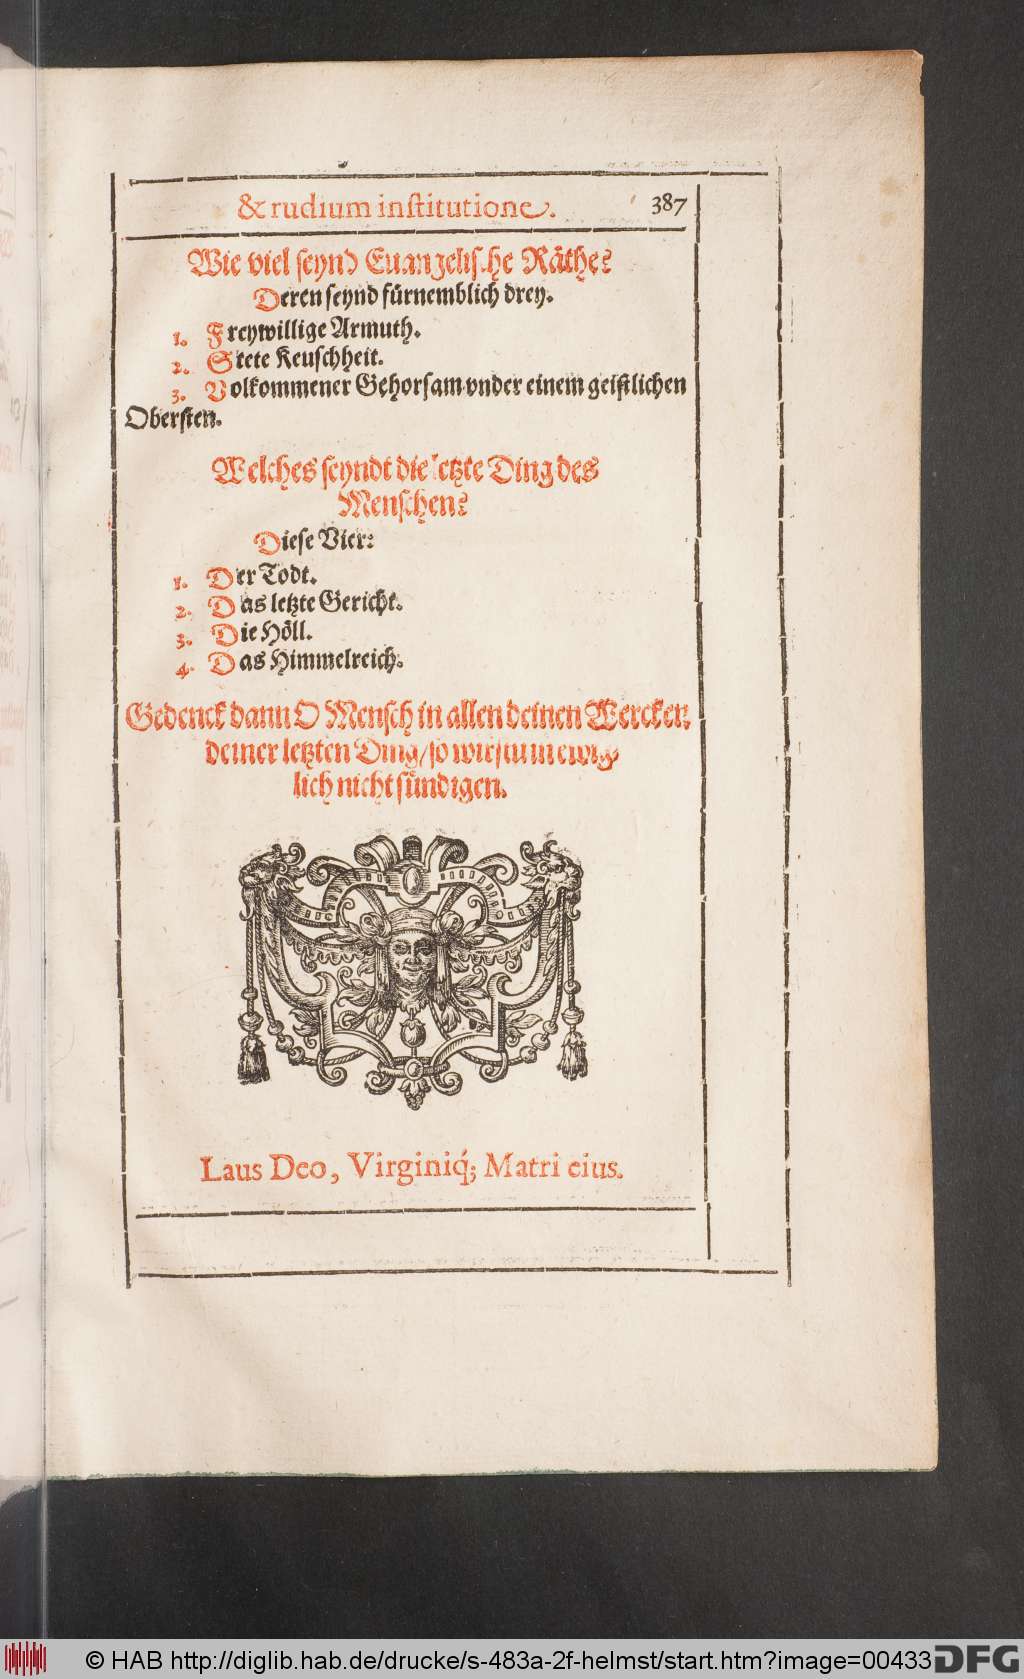 & rudium institutione.
387
Wie viel seynd Euangelische Räthe?
Deren seynd fürnemblich drey.
1. Freywillige Armuth.
2. Stete Keuschheit.
3. Volkommener Gehorsam vnder einem geistlichen
Obersten.
Welches seyndt die letzte Ding des
Menschen?
Diese Vier:
1. Der Todt.
2. Das letzte Gericht.
3. Die Höll.
4. Das Himmelreich.
Gedenck dann O Mensch in allen deinen Wercken
deiner letzten Ding / so wirstu in ewig-
lich nicht sündigen.
Laus Deo, Virginiq́; Matri eius.
© HAB http://diglib.hab.de/drucke/s-483a-2f-helmst/start.htm?image=00433
DFG